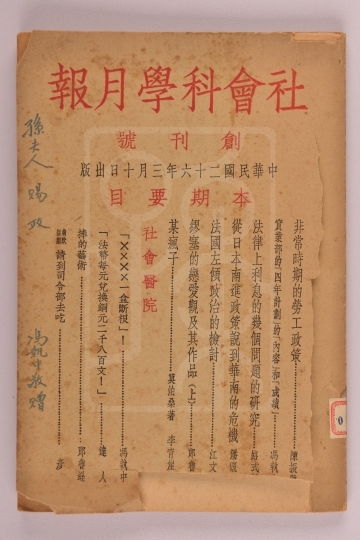 社會科學月報
創刊號
中華民國二十六年三月十日出版
本期要目
非常時期的勞工政策……陳振鷺
實業部的「四年計劃」的「內容」和「成績」……馮執
法律上利息的幾個問題的研究……
從日本南進政策說到華南的危機
法國左領政治的檢討……江文
繆塞的戀愛觀及其作品(上)……邱魯
某瘋子……莫泊桑著 李青崖
社會醫院
「××××一盒斷根」!……馮執中
「法幣每元兌換銅元二千八百文!」……達人
捧的藝術……邱魯
請到司令部去吃……彥
孫夫人 賜政
馮執中敬贈
0